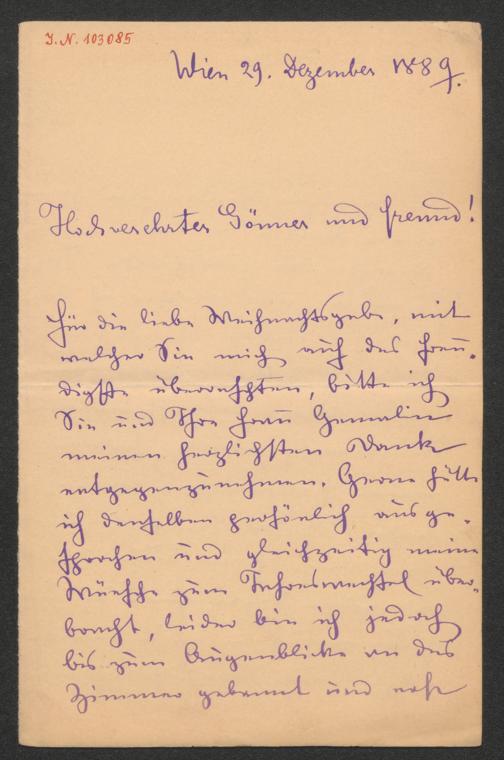 I.N. 103085
Wien 29. Dezember 1889.
Hochverehrter Gönner und Freund!
Für die liebe Weihnachtsgabe, mit
welcher Sie mich auf das Freu-
digste überraschten, bitte ich
Sie und Ihre Frau Gemalin
meinen herzlichsten Dank
entgegenzunehmen. Gerne hätte
ich denselben persönlich ausge-
sprochen und gleichzeitig meine
Wünsche zum Jahreswechsel über-
bracht, leider bin ich jedoch
bis zum Augenblicke an das
Zimmer gebannt und erst